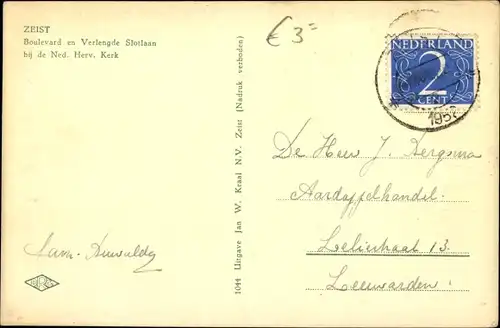 ZEIST
Boulevard en Verlengde Slotlaan
bij de Ned. Herv. Kerk
€ 3=
NEDERLAND
2
CENT
195
1044 Uitgave Jan W. Kraal N.V. Zeist (Nadruk verboden)
De Heer J. Bergsma
Aardappelhandel.
Leliestraat 13.
Leeuwarden.
Fam.